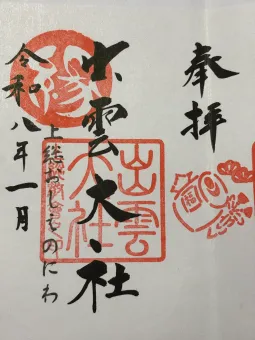 奉拝
出雲大社
上総おしものにわ
令和八年一月
出雲
大社